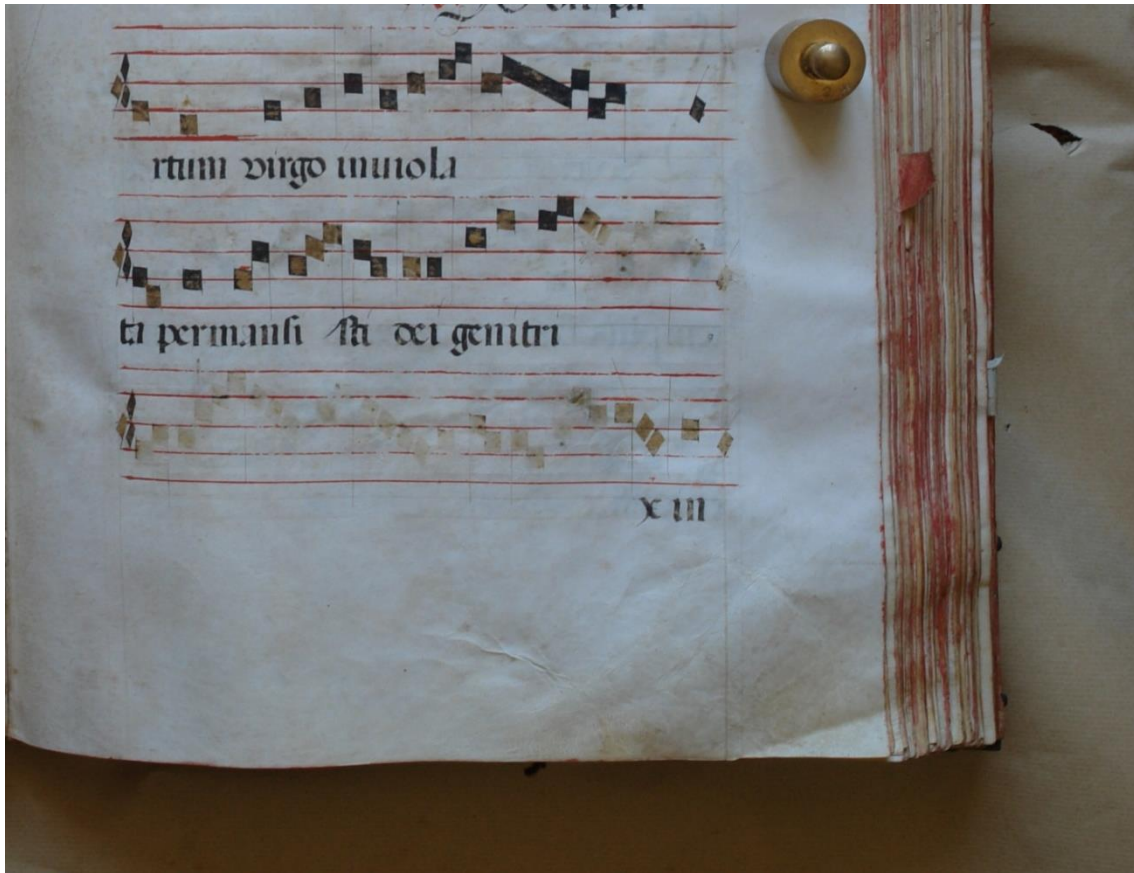 rtum virgo inviola
ta permansi sti dei genitri
x iii